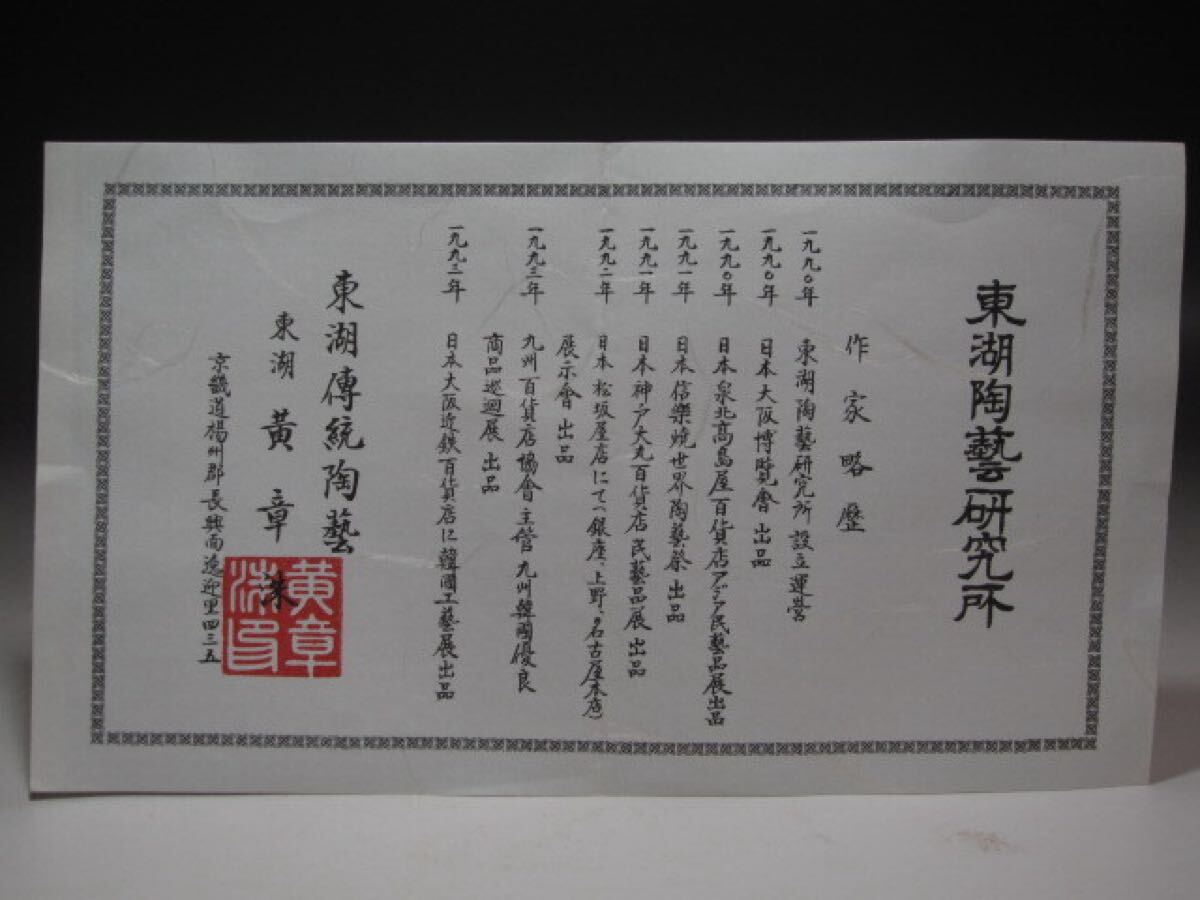 東湖陶藝研究所
作家略歷
一九九〇年 東湖陶藝研究所 設立運営
一九九〇年 日本大阪博覧會 出品
一九九〇年 日本泉北高島屋百貨店アジア民藝品展出品
一九九一年 日本信樂焼世界陶藝祭 出品
一九九一年 日本神戸大丸百貨店 民藝品展 出品
一九九二年 日本 松坂屋店にて(銀座、上野、名古屋本店)
展示會 出品
一九九三年 九州百貨店協會 主管 九州韓國優良
商品巡廻展 出品
一九九三年 日本大阪近鉄百貨店に韓國工藝展出品
東湖傳統陶藝
東湖 黄章洙
京畿道楊州郡長興面 迎里四三五
黄章洙印